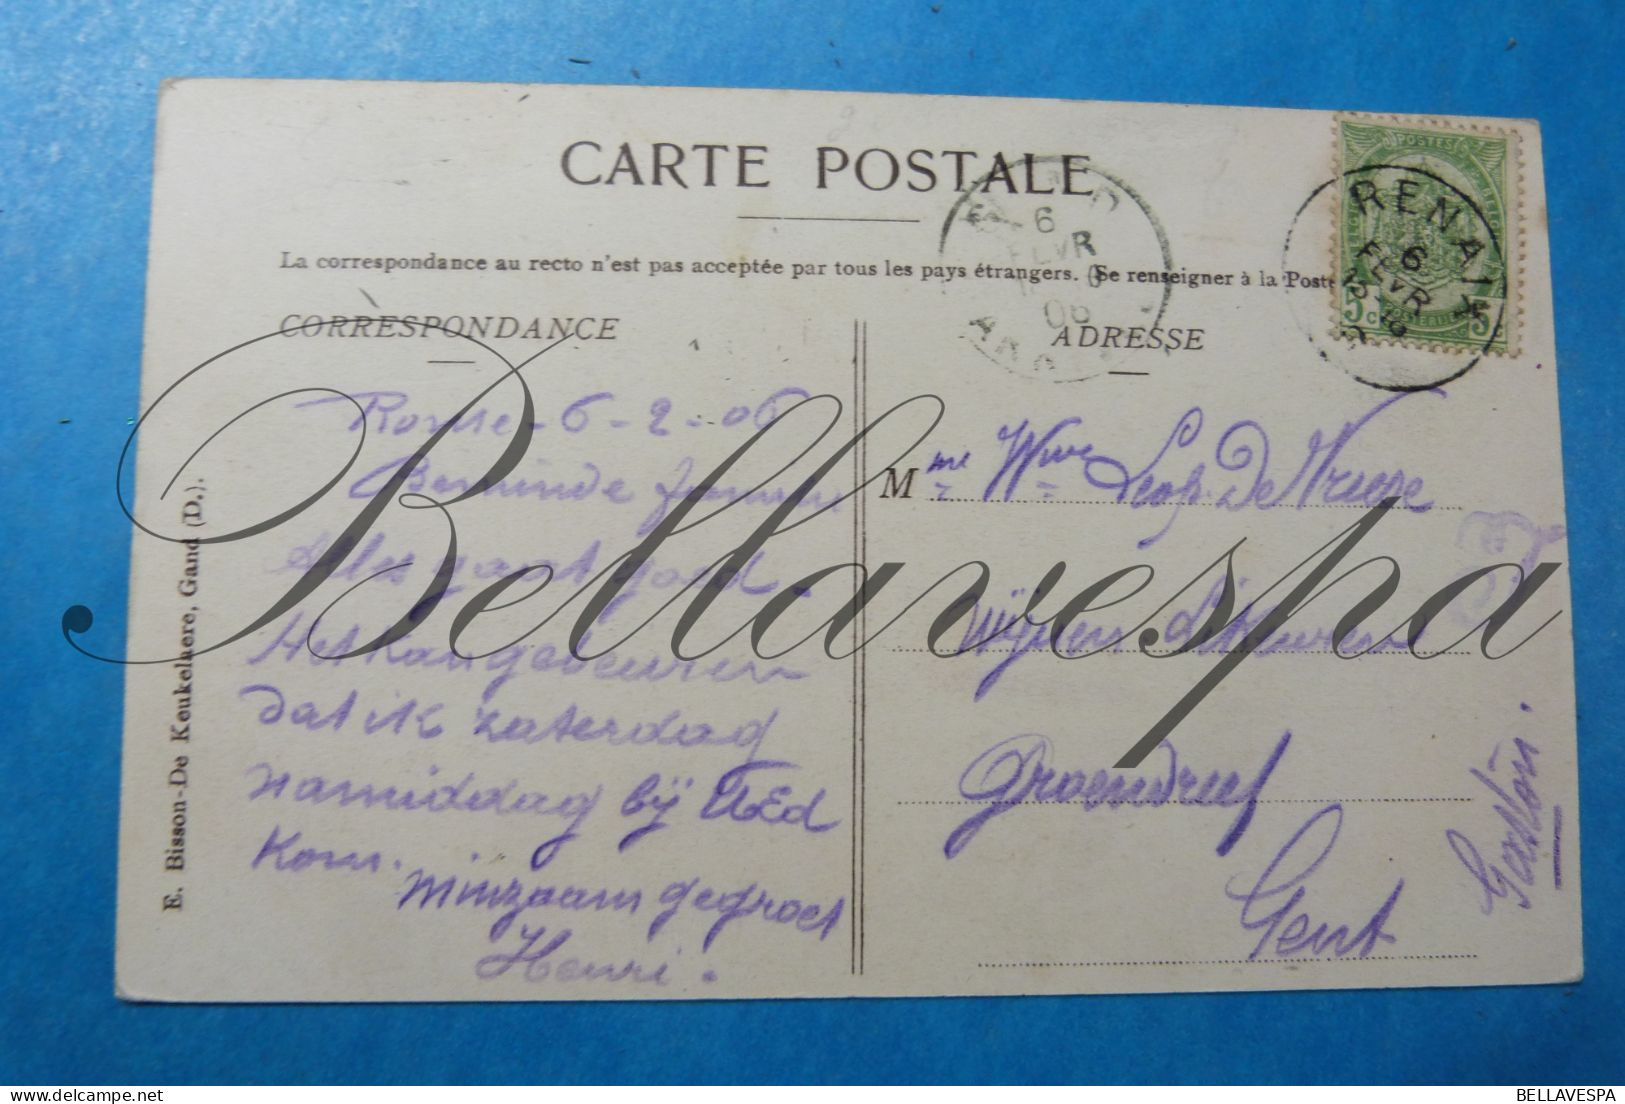 CARTE POSTALE
La correspondance au recto n'est pas acceptée par tous les pays étrangers. (Se renseigner à la Poste
CORRESPONDANCE
ADRESSE
E. Bisson-De Keukelaere, Gand (D.).
POSTES
5 c 5 c
RENAIX
6
FEVR
6
FEVR
06
Bellavespa
6-2-06
Beminde
Alles gaat goed.
dat ik zaterdag
namiddag bij UEd
Kom.
minzaam gegroet
Henri.
Mme Wwe Leop. De Vriese
Wijnen Likeuren
Groendreef
Gent
Gaston.
BELLAVESPA